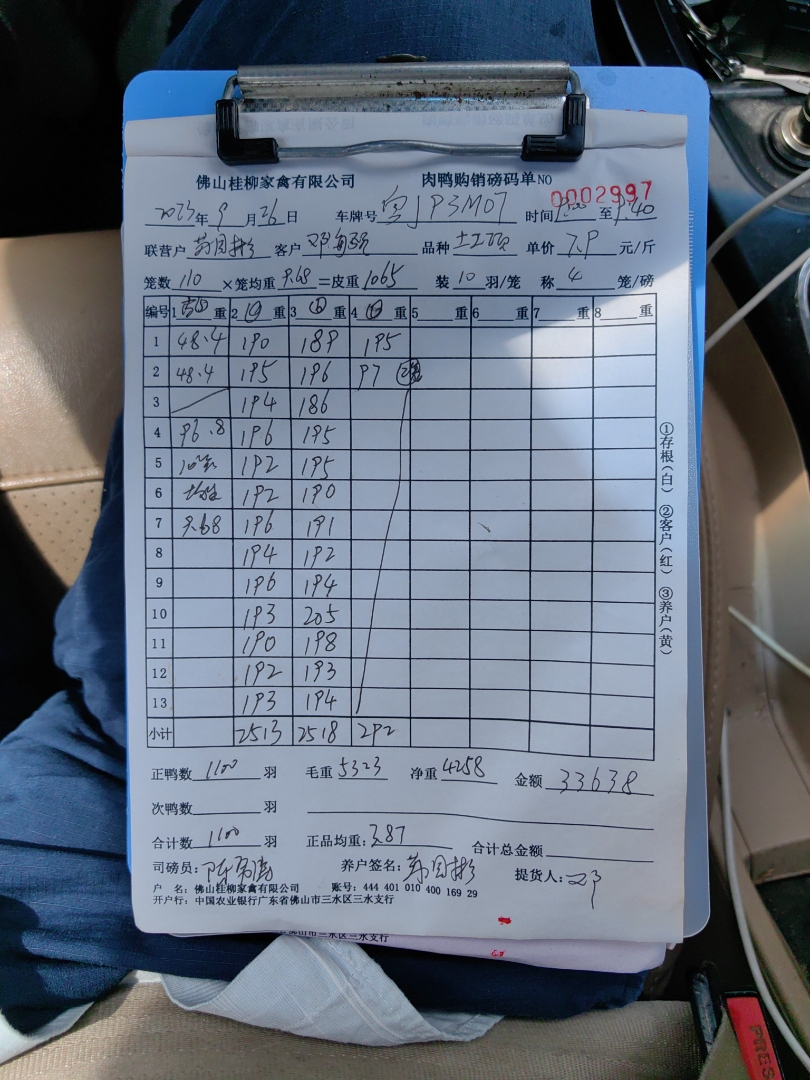 佛山桂柳家禽有限公司 肉鸭购销磅码单NO 0002997
2023年9月26日 车牌号 JP3M07 时间 至 9.40
联营户 客户 邓 品种 单价 7.9 元/斤
笼数 110 ×笼均重 9.68 =皮重 1065 装 10 羽/笼 称 4 笼/磅
编号 1 重 2 重 3 重 4 重 5 重 6 重 7 重 8 重
1 48.4 190 189 195
2 48.4 195 196 97
3 194 186
4 96.8 196 195
5 192 195
6 192 190
7 9.68 196 191
8 194 192
9 196 194
10 193 205
11 190 198
12 192 193
13 193 194
小计 2513 2518 292
正鸭数 1100 羽 毛重 5323 净重 4258 金额 33638
次鸭数 羽
合计数 1100 羽 正品均重: 3.87 合计总金额
司磅员: 养户签名: 提货人: 邓
户 名: 佛山桂柳家禽有限公司 账号: 444 401 010 400 169 29
开户行: 中国农业银行广东省佛山市三水区三水支行
①存根(白) ②客户(红) ③养户(黄)
佛山市三水区三水支行
PRES